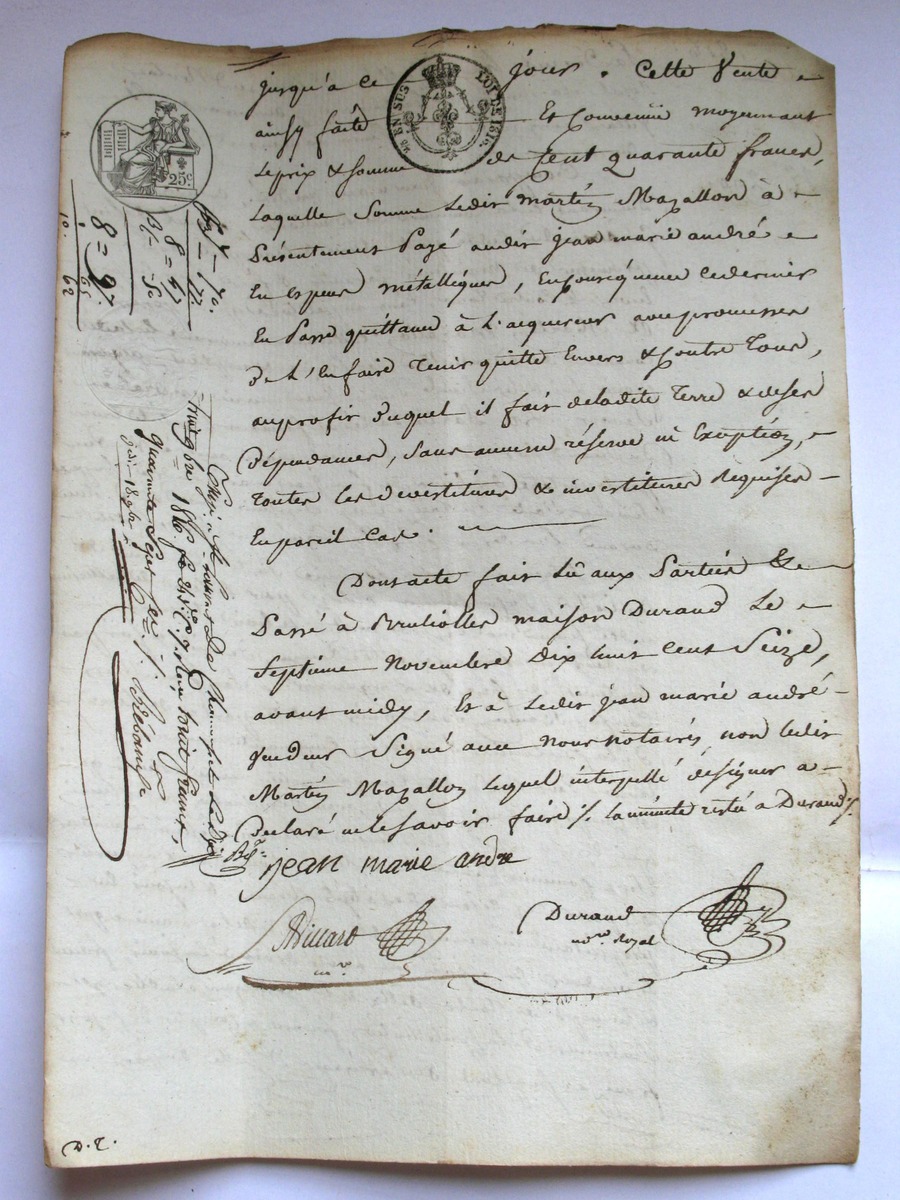 jusqu'à ce jour. Cette Vente
ainsy faite Et Convenüe moyennant
Le prix & somme de Cent quarante francs,
Laquelle Somme Ledit Martin Mazallon à
Présentement Payé audit jean marie andré
En Especes métalliques, En Conséquence ce dernier
En Passe quittance à L'acquereur avec promesse
de L'En faire Tenir quitte Envers & Contre Tous,
au profit Duquel il fait de ladite Terre & de ses
Dépendances, Sans aucune réserve ni Exception,
Toutes Les devestitures & investitures Requises
En pareil Cas.
Dont acte fait Lû aux Parties &
Passé à Brulioles maison Durand Le
Septième Novembre Dix huit Cent Seize,
avant midy, Et à Ledit jean marie andré
Vendeur Signé avec Nous notaires, non Ledit
Martin Mazallon Lequel interpellé de signer a
Declaré ne le Savoir faire /. La minute restée a Durand /.
jean marie andre
Villard
nre
Durand
nore Royal
EN SUS LOI DE 1816
25c.
8 = 97.
65
10. 62
8 = 47
D. T.